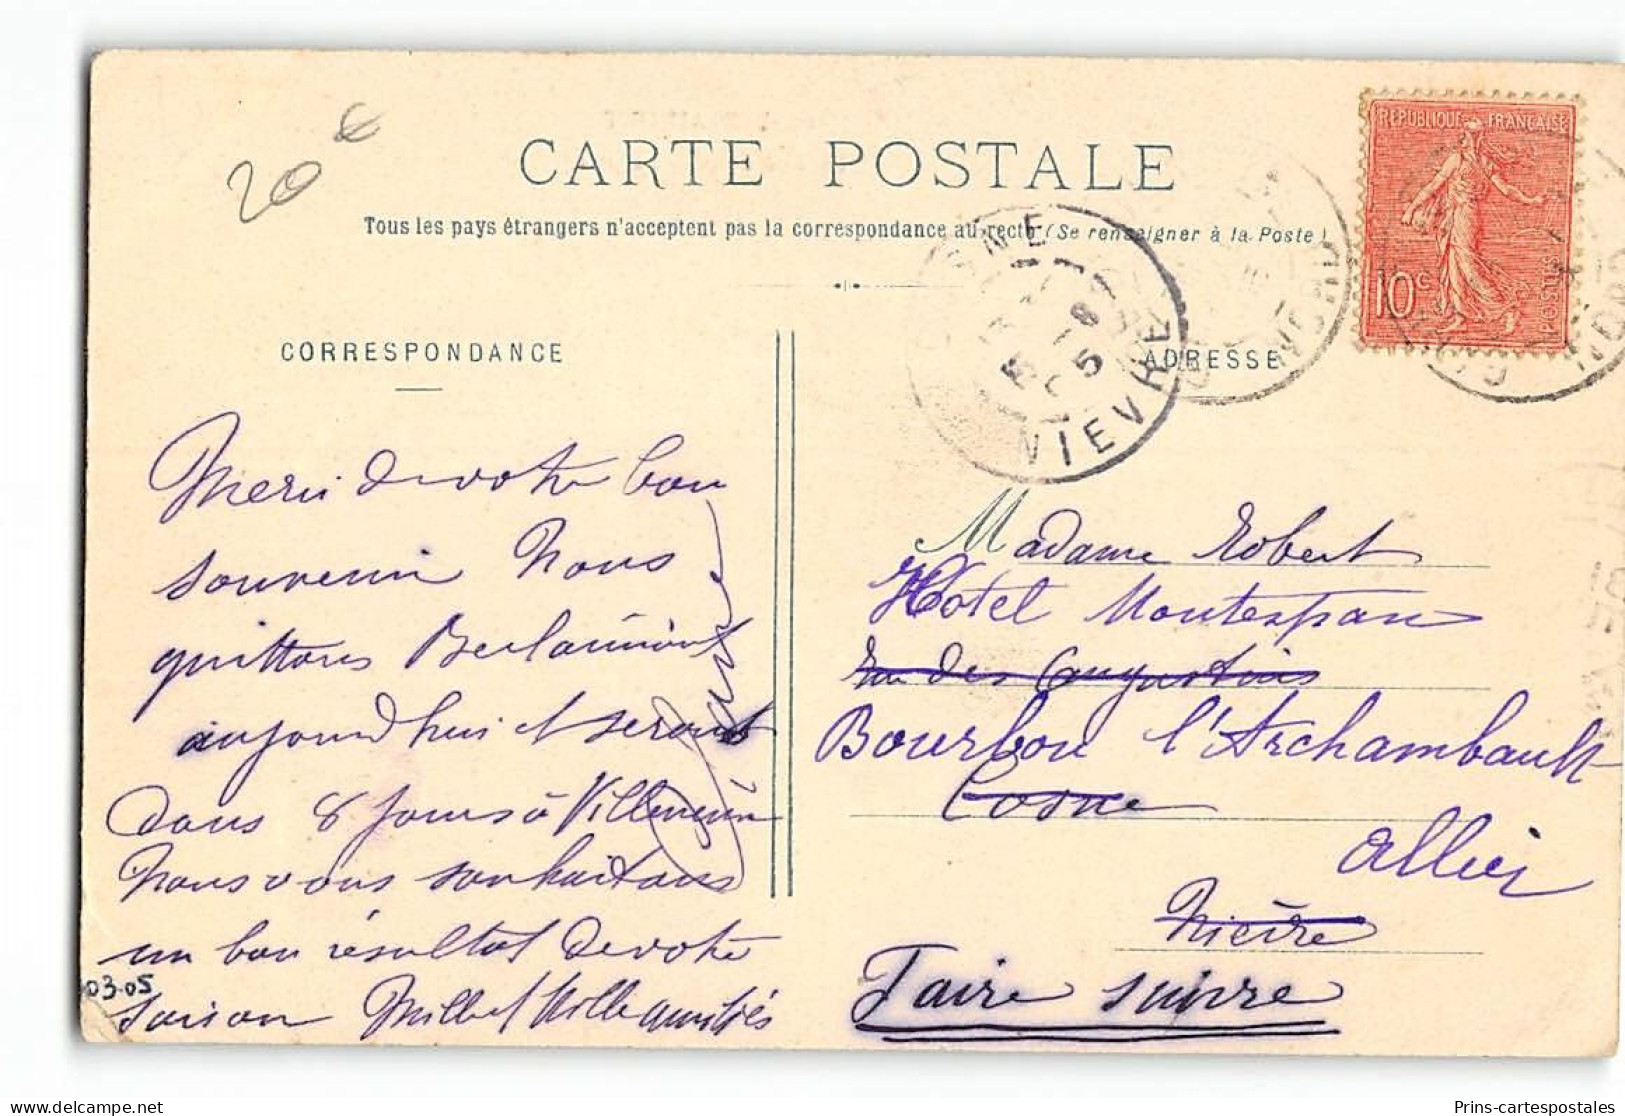 20 €
CARTE POSTALE
Tous les pays étrangers n'acceptent pas la correspondance au recto (Se renseigner à la Poste)
RÉPUBLIQUE FRANÇAISE
10 c
POSTES
NIEVRE
CORRESPONDANCE
Merci de votre bon
souvenir Nous
quittons Berlaimont
aujourd'hui et serons
dans 8 jours à
Nous vous souhaitons
un bon résultat de votre
saison Mille amitiés
03-05
ADRESSE
Madame Robert
Hôtel Montespan
Rue des Augustins
Bourbon l'Archambault
Cosne
Allier
Nièvre
Faire suivre
Prins-cartespostales